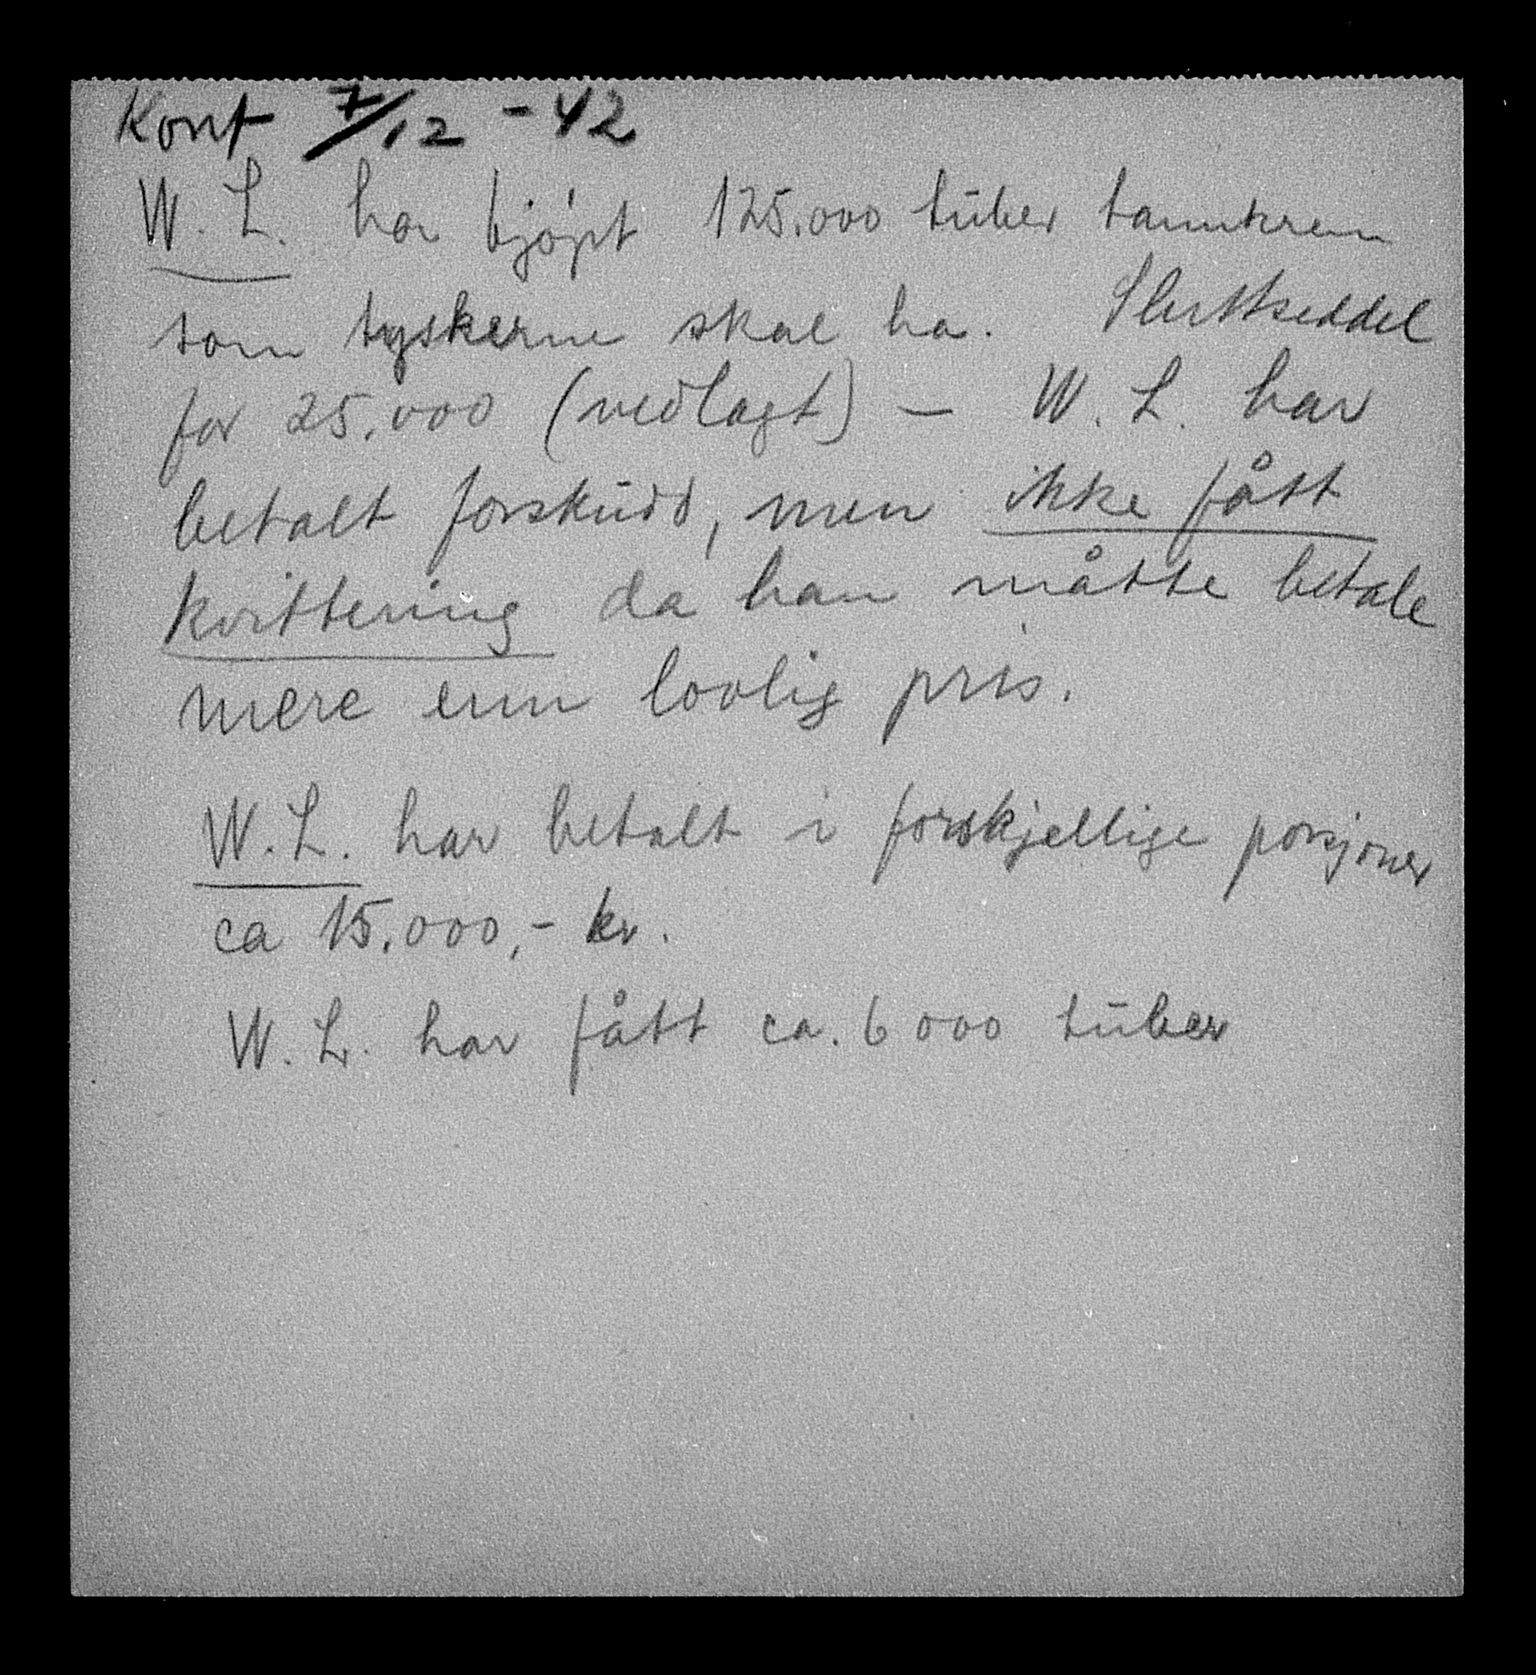 Kont 7/12 - 42
W. L. har kjøpt 125.000 tuber tannkrem
som tyskerne skal ha. Sluttseddel
for 25.000 (vedlagt) – W. L. har
betalt forskudd, men ikke fått
kvittering da han måtte betale
mere enn lovlig pris.
W. L. har betalt i forskjellige porsjoner
ca 15.000,- kr.
W. L. har fått ca. 6000 tuber